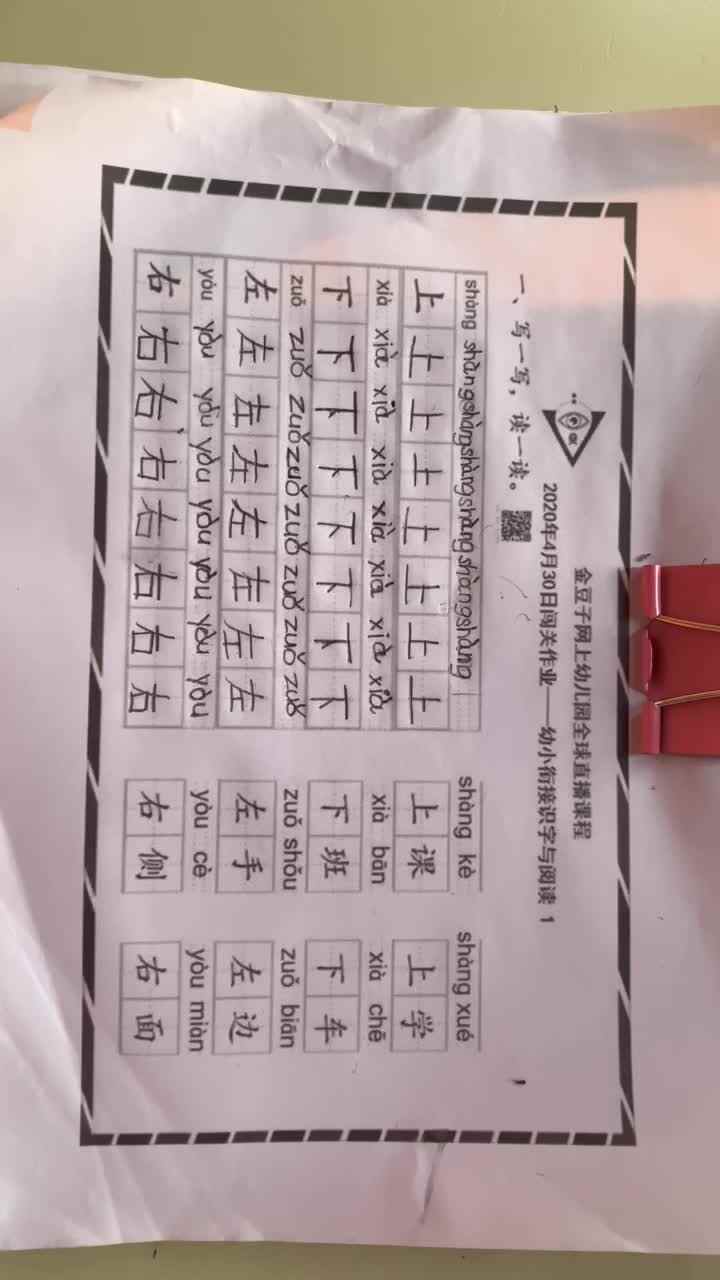 金豆子网上幼儿园全球直播课程
2020年4月30日闯关作业——幼小衔接识字与阅读 1
一、写一写，读一读。
shàng shàng shàng shàng shàng shàng shàng shàng kè shàng xué
上 上 上 上 上 上 上 上 上 课 上 学
xià xià xià xià xià xià xià xià xià bān xià chē
下 下 下 下 下 下 下 下 下 班 下 车
zuǒ zuǒ zuǒ zuǒ zuǒ zuǒ zuǒ zuǒ zuǒ shǒu zuǒ biān
左 左 左 左 左 左 左 左 左 手 左 边
yòu yòu yòu yòu yòu yòu yòu yòu yòu cè yòu miàn
右 右 右 右 右 右 右 右 右 侧 右 面